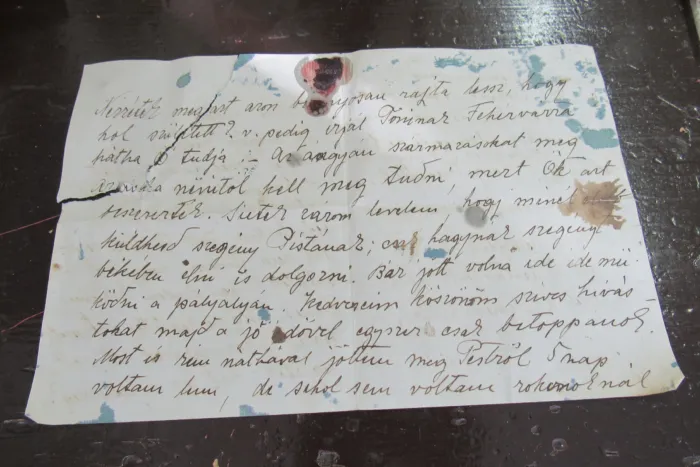 megint azon bizonyosan rajta lessz, hogy
hol született? v. pedig irjál Toninak Fehervarra
hátha ő tudja :- Az ángyán származásokat meg
nénitől kell meg tudni, mert Ők azt
össeszerték. Sietek zárom levelem, hogy minél
küldhesd szegény Pistának; csak hagynák szegényt
békében élni is dolgozni. Bár jött volna ide ide mü-
ködni a pályályán. Kedvesem köszönöm szives hivás-
tokat majd a jő idővel egyszer csak betoppanok.
Most is nem nathával jöttem meg Pestről 5 nap
voltam lenn, de sehol sem voltam rokonoknál